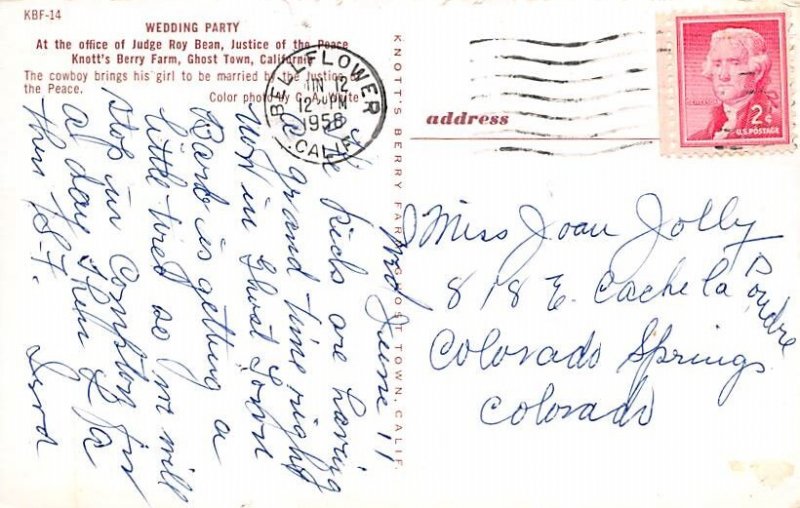 KBF-14
WEDDING PARTY
At the office of Judge Roy Bean, Justice of the Peace
Knott's Berry Farm, Ghost Town, California
The cowboy brings his girl to be married by the Justice of
the Peace.
Color photo by
KNOTT'S BERRY FARM, GHOST TOWN, CALIF.
BELLFLOWER
JUN 12
12 PM
1958
CALIF.
2¢
U.S. POSTAGE
address
Wed June 11
The kids are having
a grand time right
now in Ghost Town
Barb is getting a
little tired so
will
stop in Compton for
a day then to
thru
Miss Joan Jolly
818 E. Cache la Poudre
Colorado Springs
Colorado